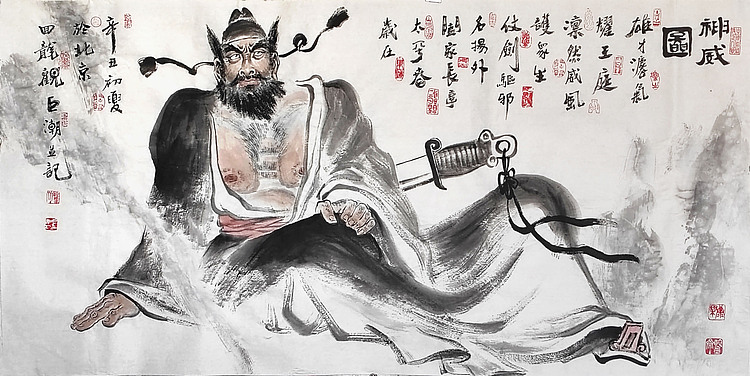 神威
圖
雄才氣
耀王庭
凜然威風
護眾生
仗劍驅邪
名揚外
闔家長享
太平春
歲在
辛丑初夏
於北京
回龍觀巨潮並記